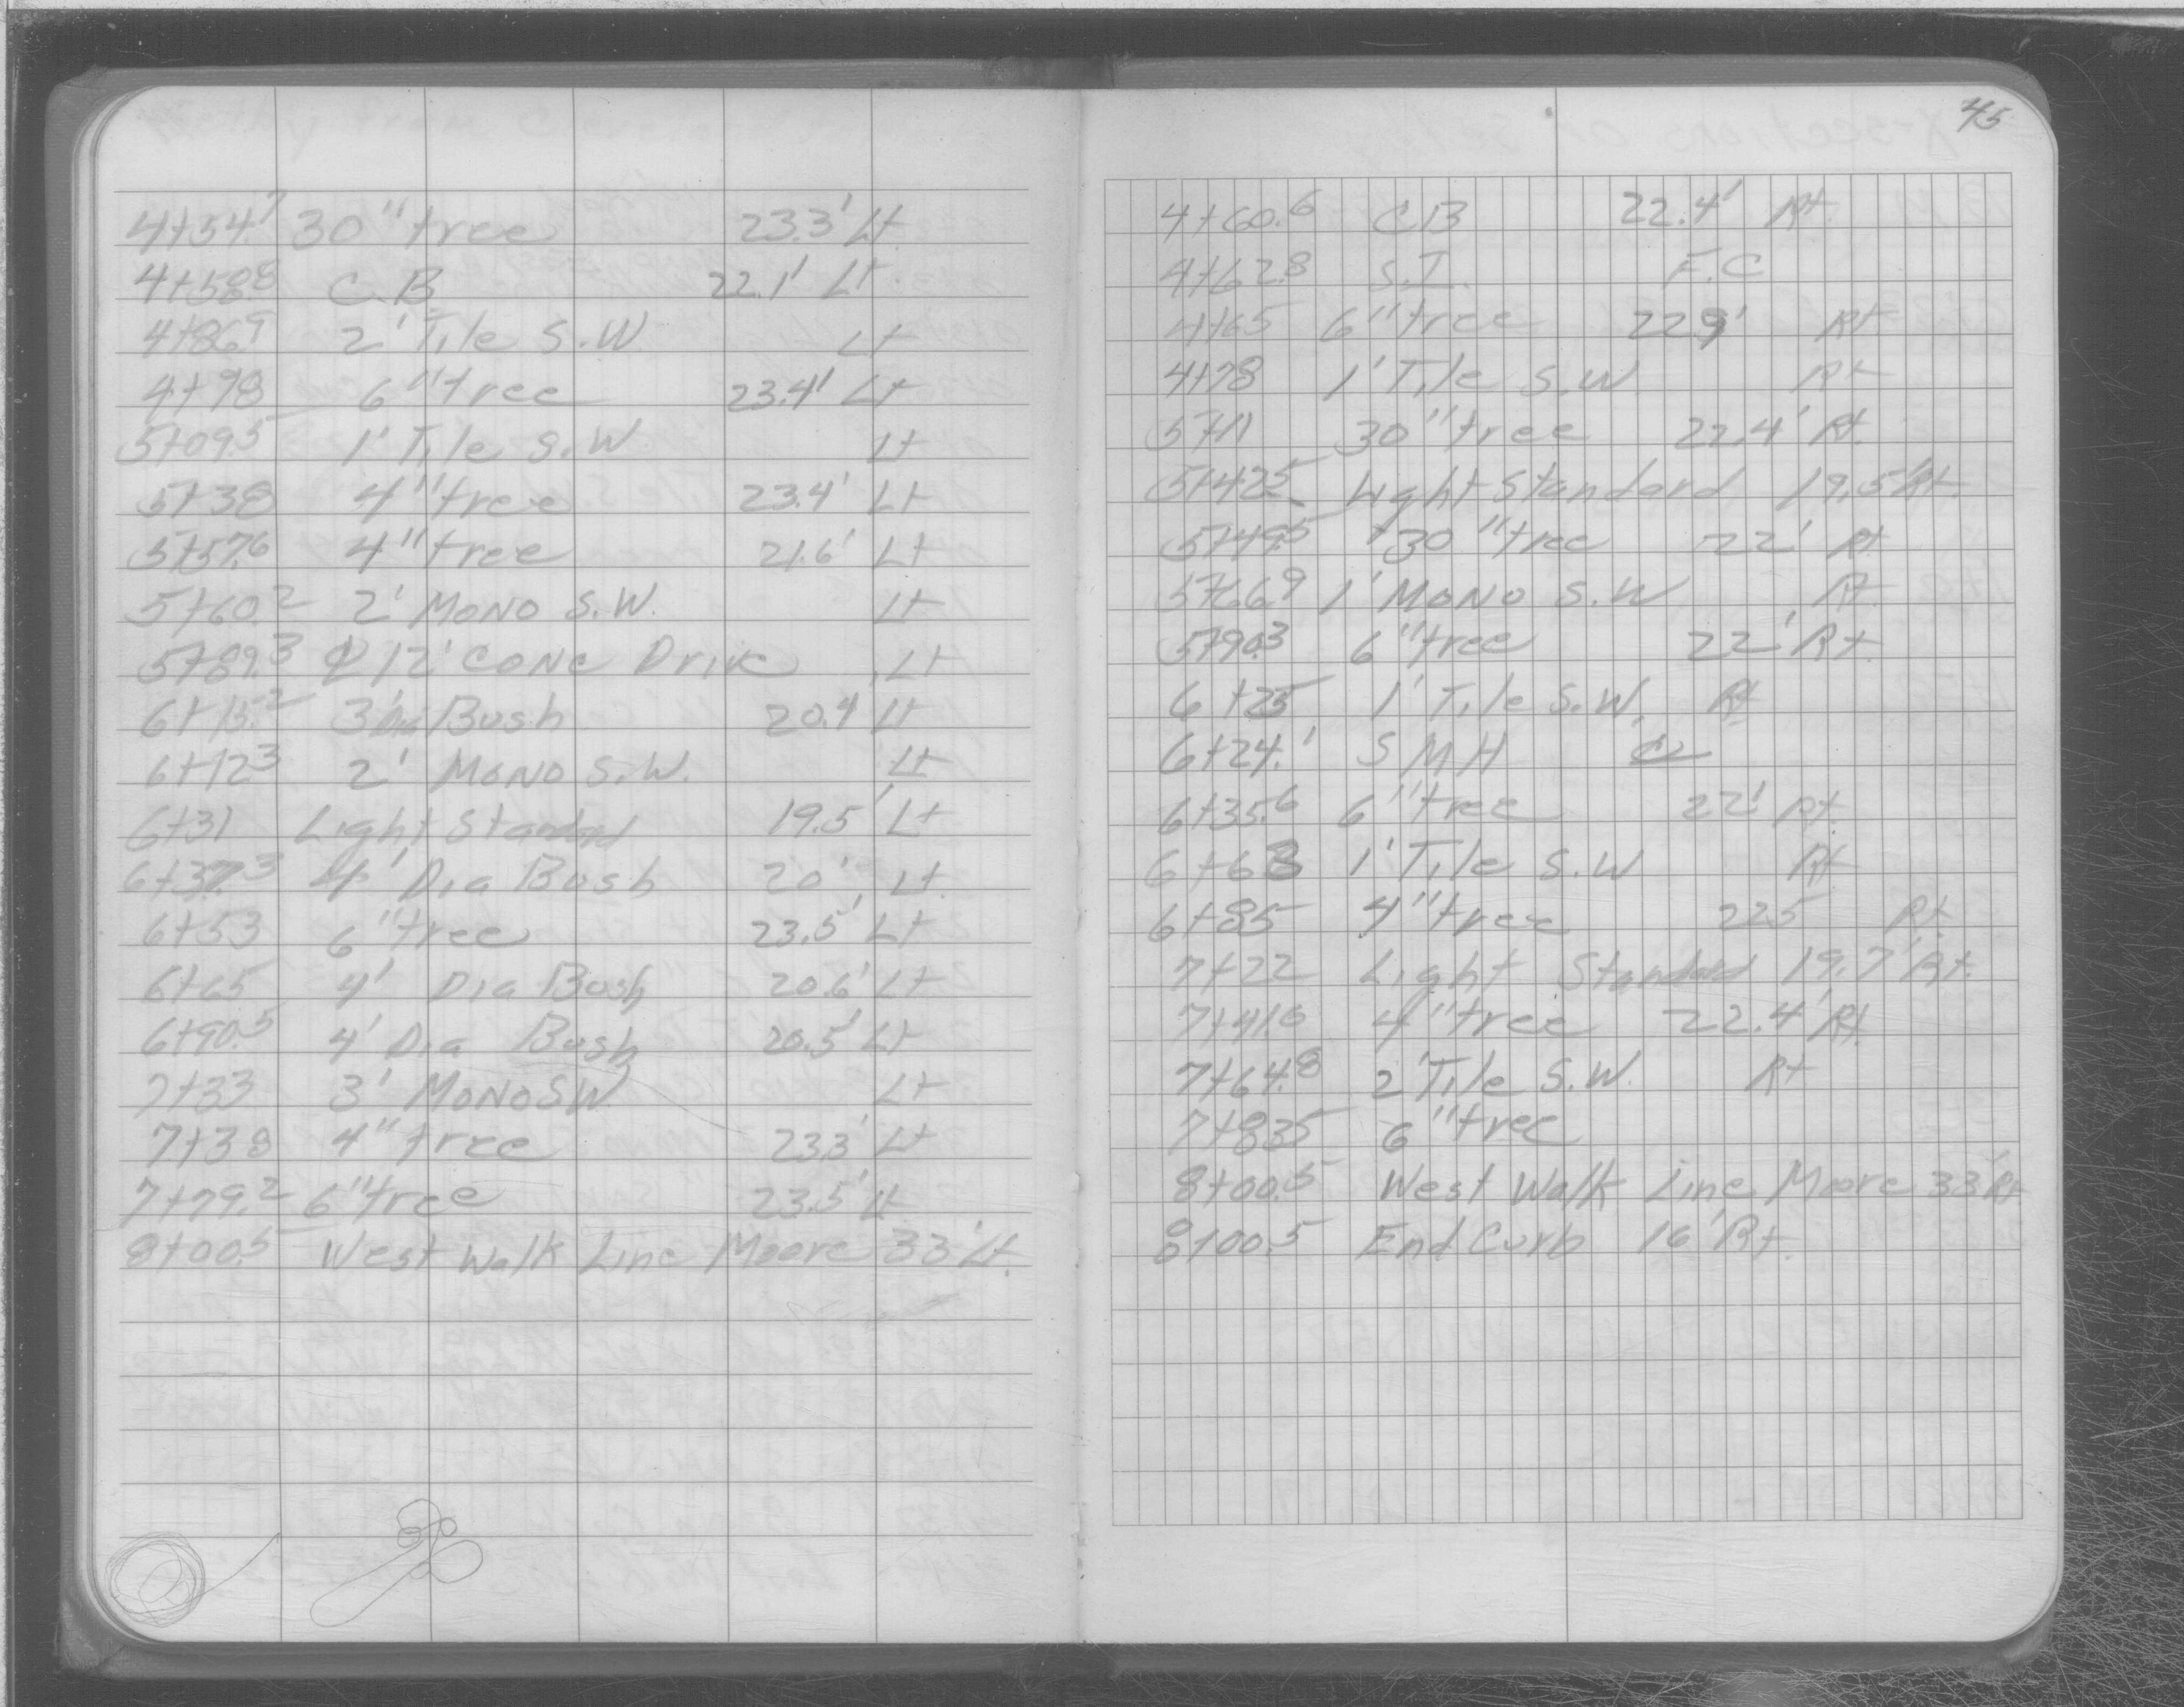 4+54.7 30" tree 23.3' Lt.
4+58.8 C.B 22.1' Lt.
4+86.9 2' Tile S.W Lt
4+98 6" tree 23.4' Lt
5+09.5 1' Tile S.W. Lt
5+38 4" tree 23.4' Lt
5+57.6 4" tree 21.6' Lt
5+60.2 2' MONO S.W. Lt
5+89.3 12' CONC Drive Lt
6+15.2 3' Dia Bush 20.4' Lt
6+12.3 2' MONO S.W. Lt
6+31 Light Standard 19.5' Lt
6+37.3 4' Dia Bush 20' Lt.
6+53 6" tree 23.5' Lt
6+65 4' Dia Bush 20.6' Lt
6+90.5 4' Dia Bush 20.5' Lt
7+33 3' MONO SW Lt
7+38 4" tree 23.3' Lt
7+79.2 6" tree 23.5' Lt
8+00.5 West Walk Line Moore 33' Lt.
45
4+60.6 C.B 22.4' Rt.
4+62.8 S.I. F.C
4+65 6" tree 22.9' Rt
4+78 1' Tile S.W. Rt
5+11 30" tree 22.4' Rt.
5+42.5 Light Standard 19.5' Rt.
5+49.5 30" tree 22' Rt
5+66.9 1' MONO S.W Rt.
5+90.3 6" tree 22' Rt.
6+25 1' Tile S.W. Rt
6+24.1 S M H
6+35.6 6" tree 22' Rt.
6+68 1' Tile S.W Rt.
6+85 4" tree 22.5 Rt.
7+22 Light Standard 19.7' Rt.
7+41.6 4" tree 22.4' Rt.
7+64.8 2' Tile S.W. Rt
7+83.5 6" tree
8+00.5 West Walk Line Moore 33' Rt
8+00.5 End Curb 16' Rt.